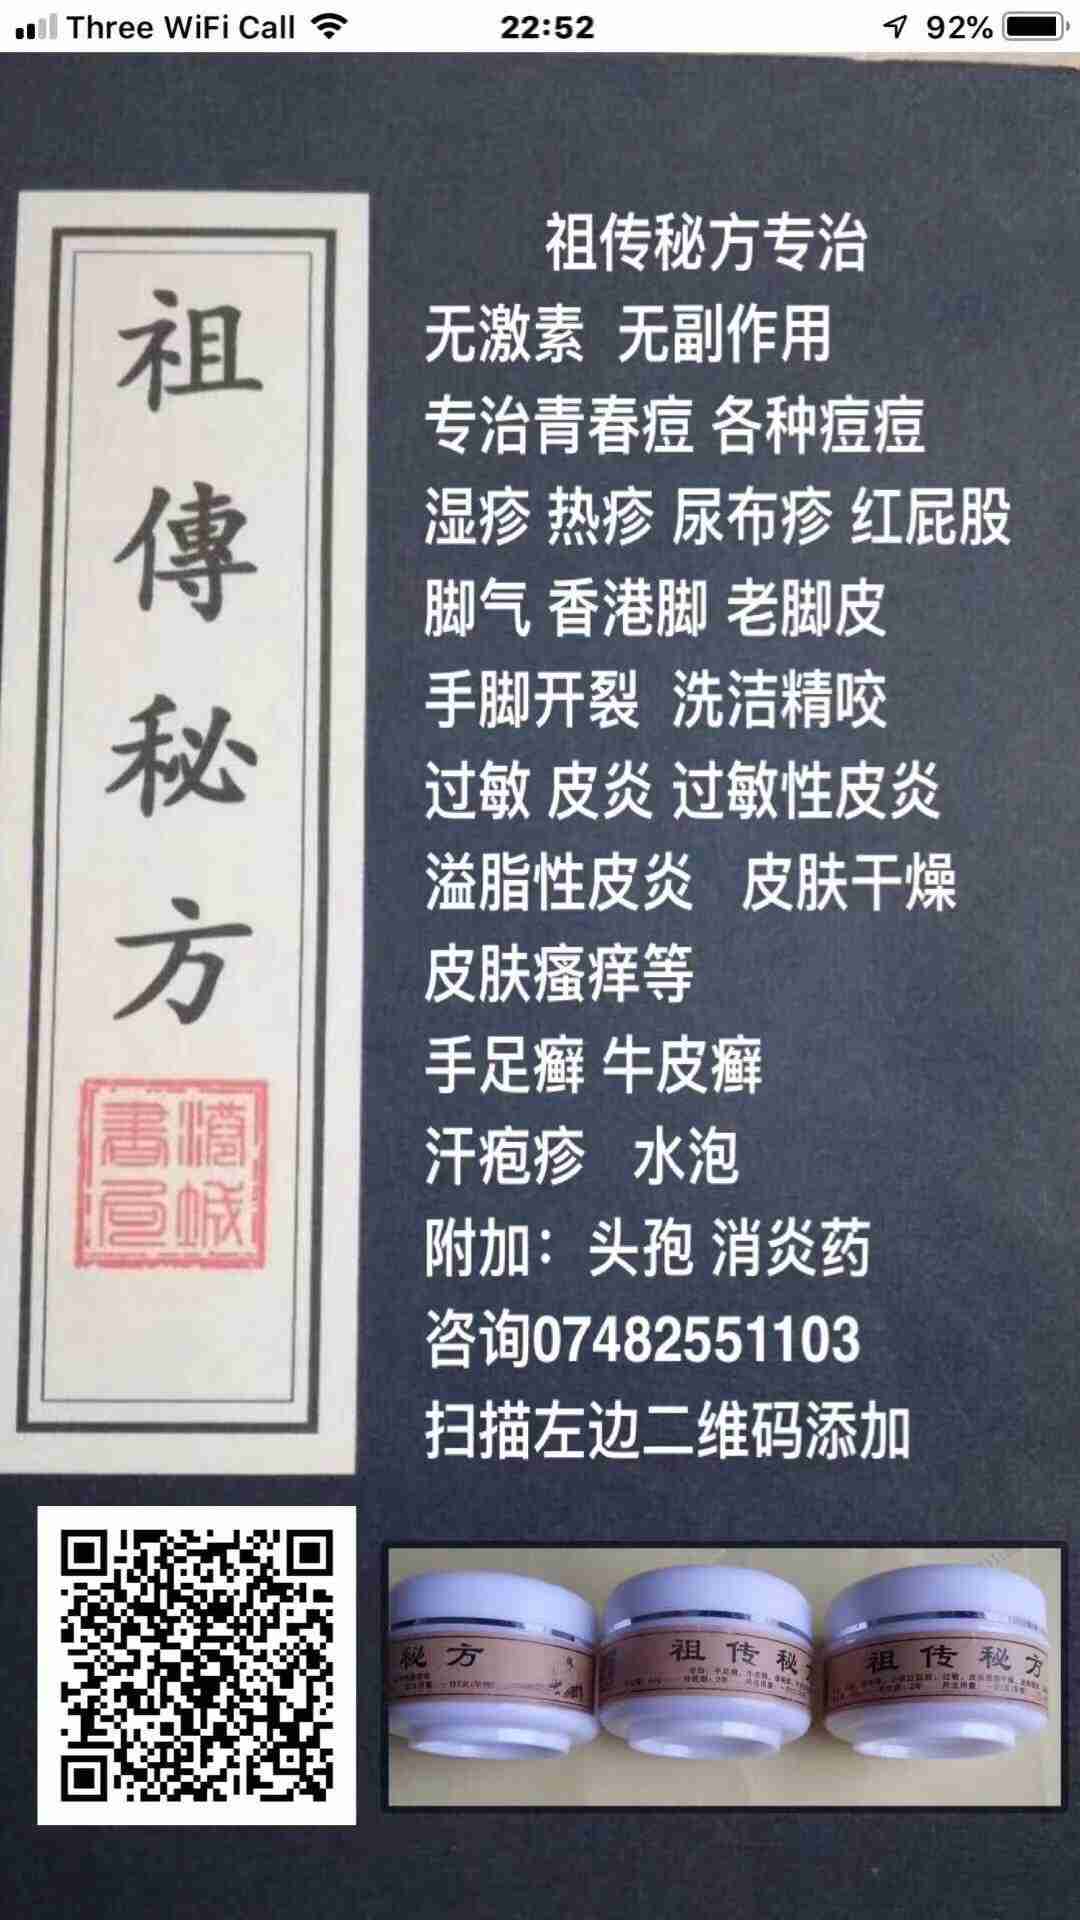 Three WiFi Call 22:52 92%
祖傳秘方
祖传秘方专治
无激素 无副作用
专治青春痘 各种痘痘
湿疹 热疹 尿布疹 红屁股
脚气 香港脚 老脚皮
手脚开裂 洗洁精咬
过敏 皮炎 过敏性皮炎
溢脂性皮炎 皮肤干燥
皮肤瘙痒等
手足癣 牛皮癣
汗疱疹 水泡
附加：头孢 消炎药
咨询07482551103
扫描左边二维码添加
秘方
祖传秘方
祖传秘方